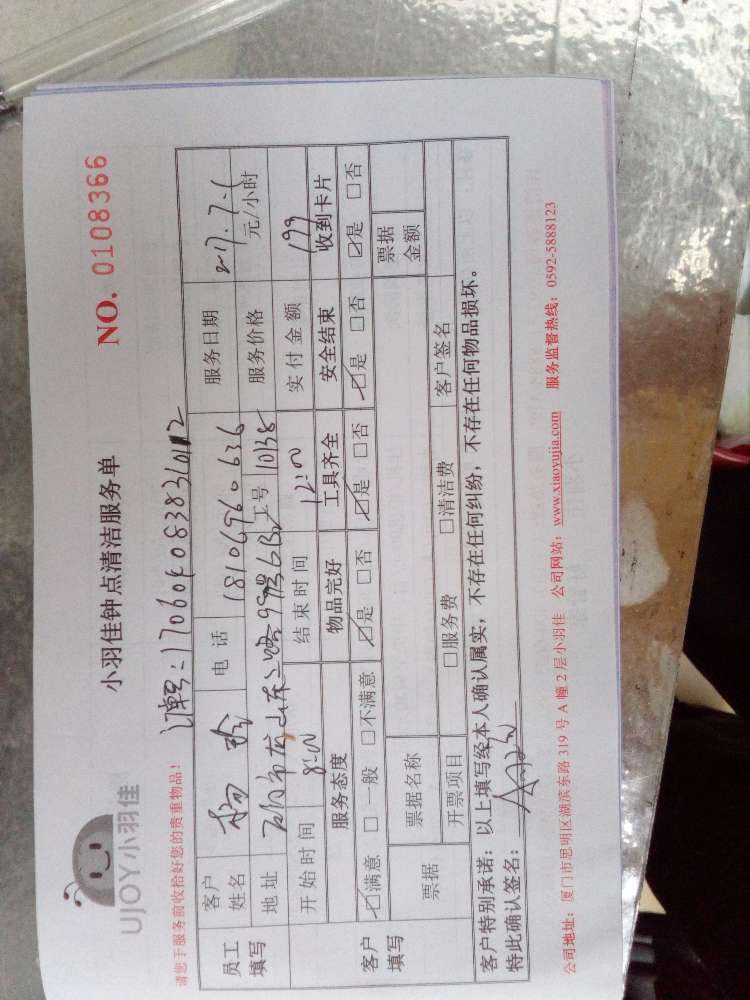 UJOY小羽佳
小羽佳钟点清洁服务单
NO. 0108366
请您于服务前收拾好您的贵重物品!
订单号:17060408383610112
员工填写
客户姓名 杨 电话 18106960636 服务日期 2017.7.1
地址 龙山东二路 工号 10138 服务价格 元/小时
开始时间 8:00 结束时间 12:00 实付金额 199
客户填写
服务态度 物品完好 工具齐全 安全结束 收到卡片
☑满意 □一般 □不满意 ☑是 □否 ☑是 □否 ☑是 □否 ☑是 □否
票据 票据名称 票据金额
开票项目 □服务费 □清洁费 客户签名
客户特别承诺:以上填写经本人确认属实,不存在任何纠纷,不存在任何物品损坏。
特此确认签名:
公司地址:厦门市思明区湖滨东路 319 号 A 幢 2 层小羽佳 公司网站:www.xiaoyujia.com 服务监督热线:0592-5888123